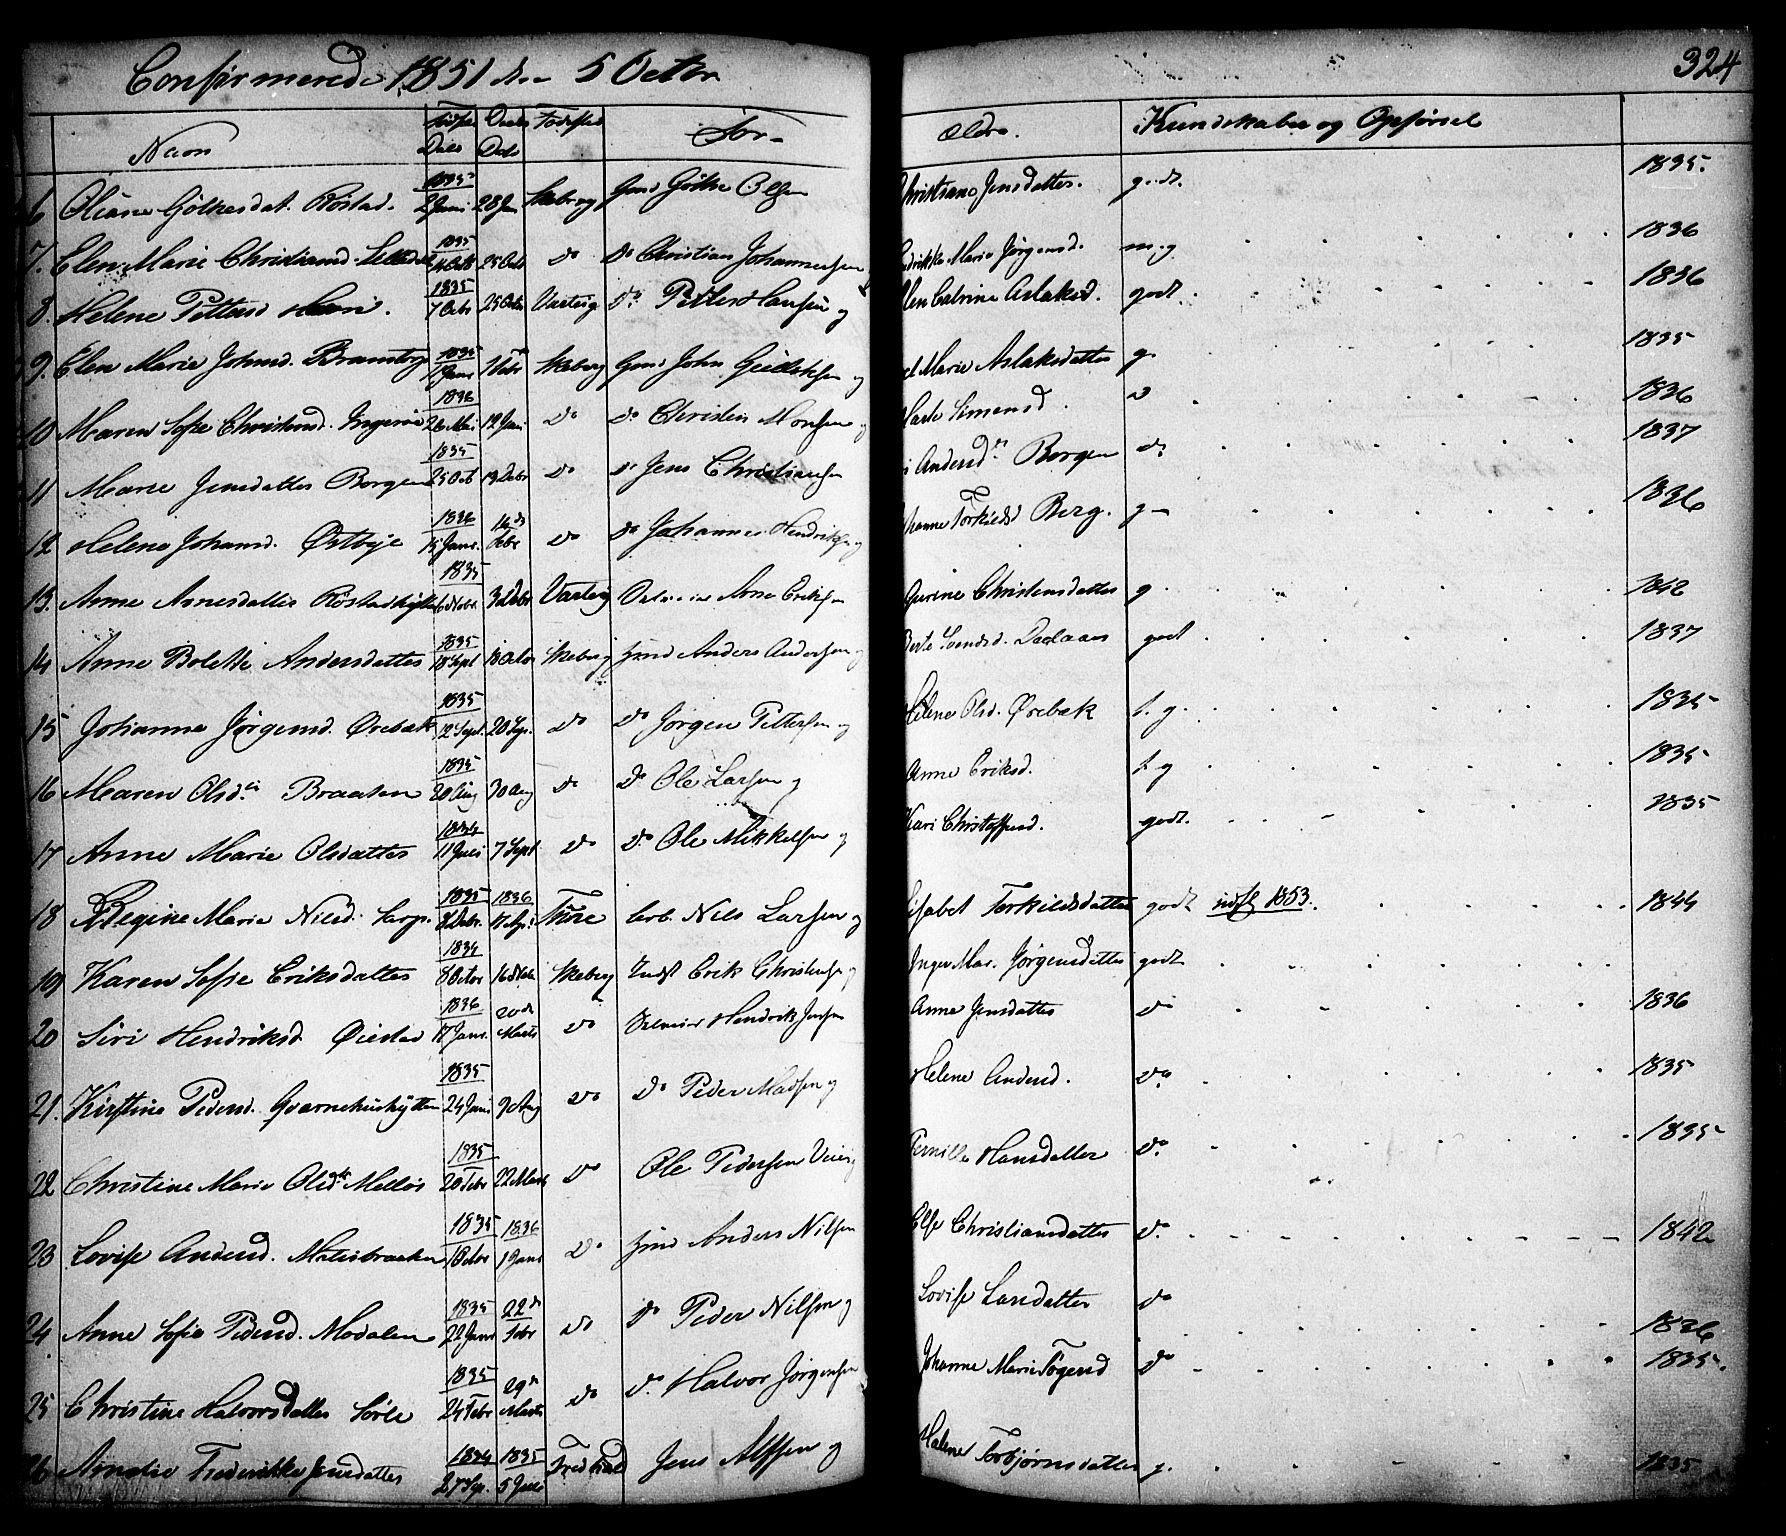 Confirmerede 1851 den 5 Octbr
324
Navn Fødsels Dato Daabs Dato Fødested For- ældre. Kundskaber og Opførsel
6 Oliane Gölkesdat. Röstad. 1835 2 Juni 28 Jun Skeberg Gmd Gölke Olsen Christiane Jensdatter. godt. 1835.
7. Elen Marie Christiansd. 1835 25 Octb do do Christian Johannesen Marie Jørgensd. m.g 1836
8. Helene Pettersd 1835 7 Octbr 25 Octbr Varteig do Petter Hansen og Elen Catrine Aslaksd. godt. 1836
9. Elen Marie Johnsd. 1835 Skeberg Gmd John og Marie Aslaksdatter g. 1835
10 Maren Sofie Christensd. Ingerøe 1836 26 Mai 12 Juni do do Christen Monsen og Marte Simensd. 1836
11 Marie Jensdatter Borgen 1835 25 Oct 13 Debr do do Jens Christiansen Andersd. Borgen do 1837
12 Helene Johansd. Østbye 1836 15 Janr. 14de Febr do do Johannes Hendriksen og Torkildsd Berg. g 1836
13. Anne Arnesdatter Röstadhytten 1835 6 Novbr. 3 Debr Varteig Arne Eriksen Gurine Christensdatter g 1842
14 Anne Bolette Andersdatter 1835 18 Sept 18 Octor Skeberg Anders Andersen og Berte Svendsd. godt 1837
15 Johanne Jørgensd. Ørebæk 1835 12 Sept. 20 Sep. do do Jørgen Pettersen og Helene Olsd. Ørebæk t. g. 1835
16 Maren Olsd. Braaten 1835 20 Aug 30 Aug do Do Ole Larsen og Anne Eriksd. t. g 1835
17 Anne Marie Olsdatter 1834 11 Juli 7 Sept do do Ole Mikkelsen og Kari Christoffersd. godt. 1835
18 Regine Marie Nilsd. 1835 1836 17 Apr. Thune Nils Larsen og Lisabet Torkildsdatter godt 1853. 1844
19 Karen Sofie Eriksdatter 1834 8 Octor 16 Nobr Skeberg Indst Erik Christensen og Inger Mar. Jørgensdatter godt
20 Siri Hendriksd Øiestad 1836 17 Janr. 20de Marts do Hendrik Jensen Anne Jensdatter do 1836
21. Kirstine Pedersd. Qvernehushytten 1835 24 Juni 9 Aug do do Peder Madsen og Helene Andersd. do 1835
22 Christine Marie Olsdtr 1835 20 Febr 22 Marts do Ole Pedersen Pernille Hansdatter do. 1835
23 Lovise Andersd. 1835 1 Octor 1836 1 Janr do Anders Nilsen Else Christiansdatter do. 1842
24 Anne Sofie Pedersd. Modalen 1835 22 Janr 22de Febr do do Peder Nilsen og Lovise Larsdatter do 1836
25 Christine Halvorsdatter 1835 24 Febr 29de Marts do do. Halvor Jørgensen Johanne Marie do 1835.
26 Amalie Frederikke Jensdatter 1834 27 Sep. 1835 5 Juli Fredrhald Jens Alfsen og Halene Torbjørnsdatter g. 1835